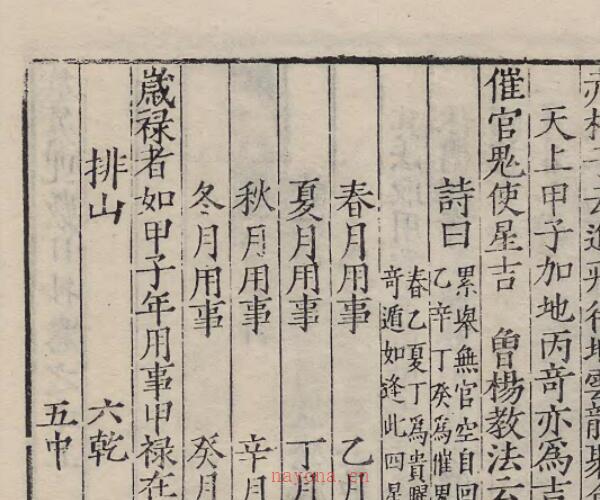 天上甲子加地丙奇亦為吉
催官鬼使星吉 曾楊教法云
詩曰 累舉無官空自回
乙辛丁癸為催
春乙夏丁為貴曜
奇遁如逢此四星
春月用事 乙月
夏月用事 丁月
秋月用事 辛月
冬月用事 癸月
歲祿者如甲子年用事甲祿在
排山 六乾
五中
nayona.cn